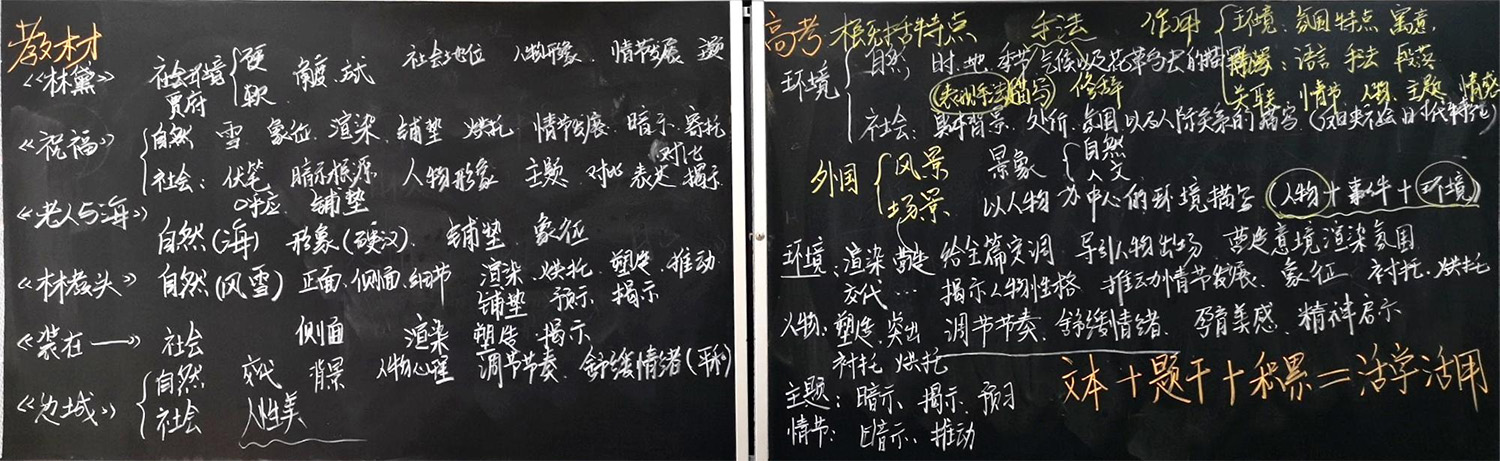 教材
《林黛》 社会环境 硬 角度.试 社会地位 人物形象. 情节发展
贾府 软
《祝福》 自然 雪 象征.渲染.铺垫 烘托. 情节发展. 暗示.寄托
对比
社会: 伏笔 暗示根源 人物形象 主题 对比 表达 揭示
呼应 铺垫
《老人与海》 自然(海) 形象(硬汉) 铺垫. 象征
《林教头》 自然(风雪) 正面.侧面.细节 渲染.烘托.塑造.推动
铺垫 预示.揭示
《装在一》 社会 侧面 渲染 塑造.揭示
《边城》 自然 交代 背景 人物心理 调节节奏.舒缓情绪(平和)
社会 人性美
高考 概括特点 手法 作用 环境: 氛围 特点 寓意,
环境 自然 时.地.季节气候以及花草鸟虫的描写 : 语言 手法 段落
(表现手法)描写 修辞 关联 情节 人物. 主题. 情感
社会: 背景.处所.氛围以及人际关系的描写.
外国 风景 景象 自然
人文
场景 以人物为中心的环境描写 人物+事件+环境
环境:渲染 营造 给全篇定调.导引人物出场. 营造意境渲染氛围
交代… 揭示人物性格 推动情节发展. 象征 衬托.烘托
人物: 塑造.突出 调节节奏.舒缓情绪. 孕育美感.精神启示
衬托 烘托
主题: 暗示. 揭示. 预习
情节: 暗示、推动
文本+题干+积累=活学活用